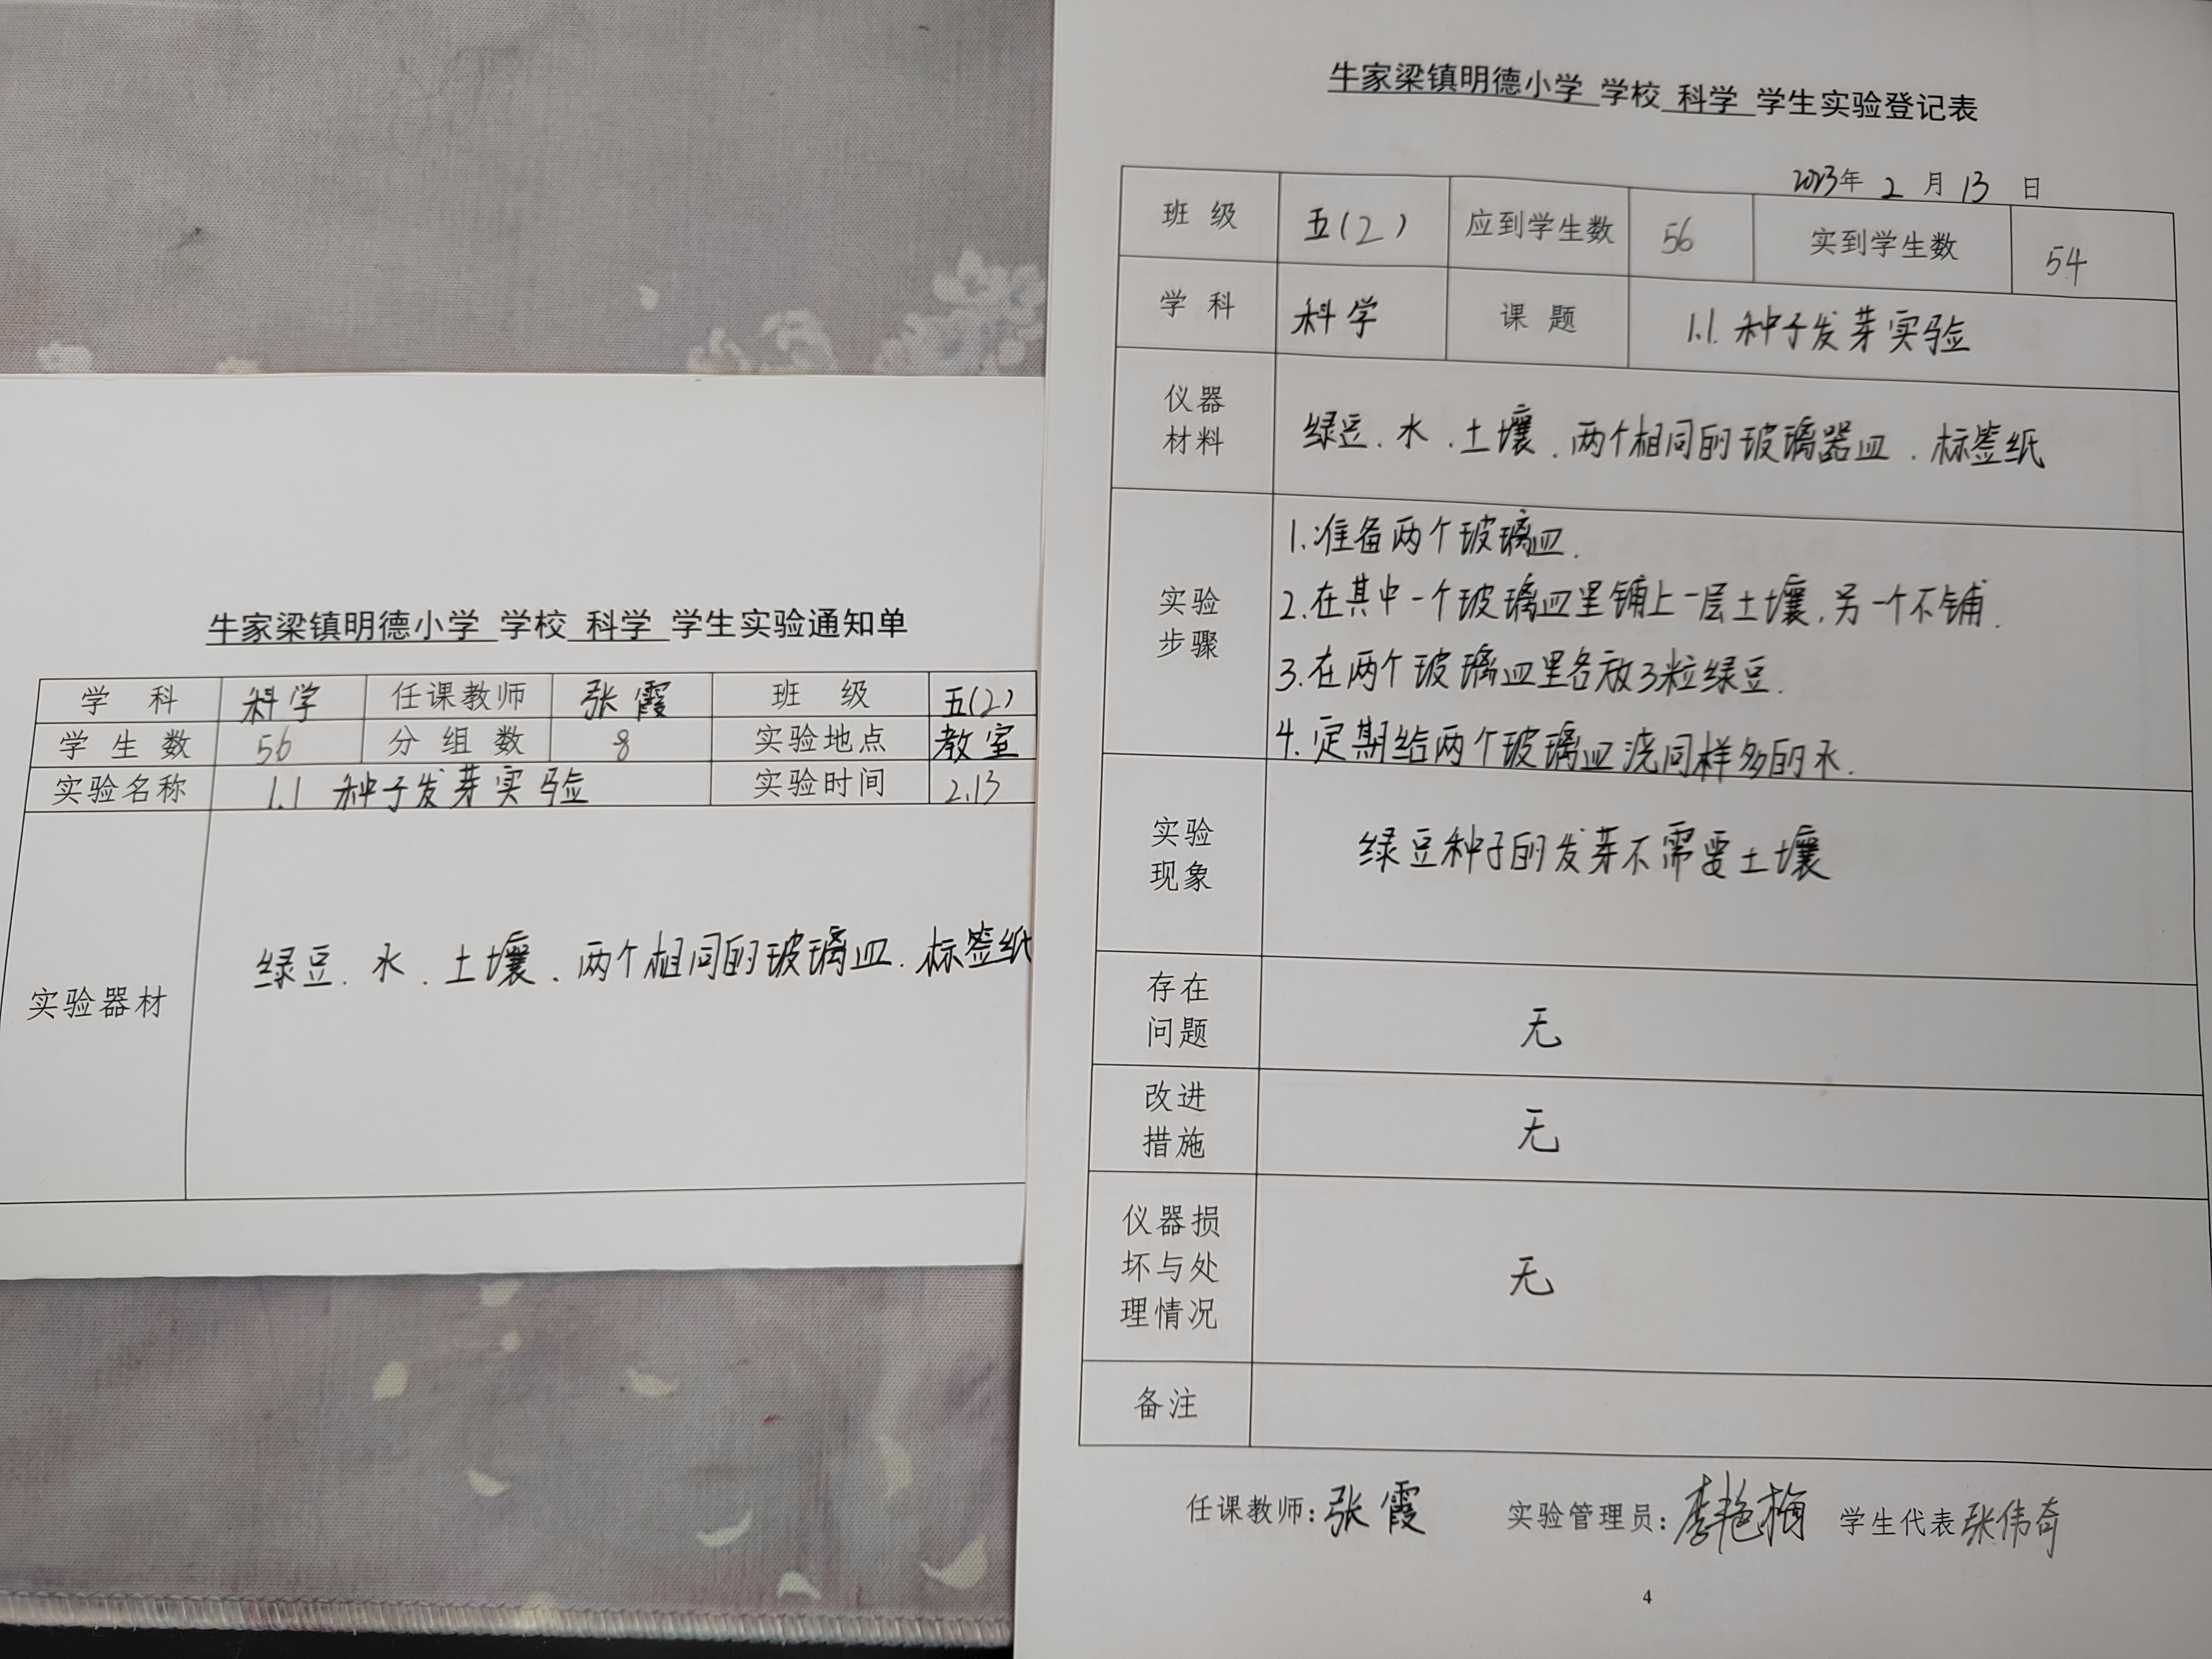 牛家梁镇明德小学 学校 科学 学生实验通知单
学 科 科学 任课教师 张霞 班 级 五(2)
学 生 数 56 分 组 数 8 实验地点 教室
实验名称 1.1 种子发芽实验 实验时间 2.13
实验器材 绿豆、水、土壤、两个相同的玻璃皿、标签纸
牛家梁镇明德小学 学校 科学 学生实验登记表
2023年 2 月 13 日
班 级 五(2) 应到学生数 56 实到学生数 54
学 科 科学 课 题 1.1.种子发芽实验
仪器
材料
绿豆、水、土壤、两个相同的玻璃器皿、标签纸
实验
步骤
1.准备两个玻璃皿.
2.在其中一个玻璃皿里铺上一层土壤,另一个不铺.
3.在两个玻璃皿里各放3粒绿豆.
4.定期给两个玻璃皿浇同样多的水.
实验
现象
绿豆种子的发芽不需要土壤
存在
问题
无
改进
措施
无
仪器损
坏与处
理情况
无
备注
任课教师:张霞 实验管理员:李艳梅 学生代表张伟奇
4